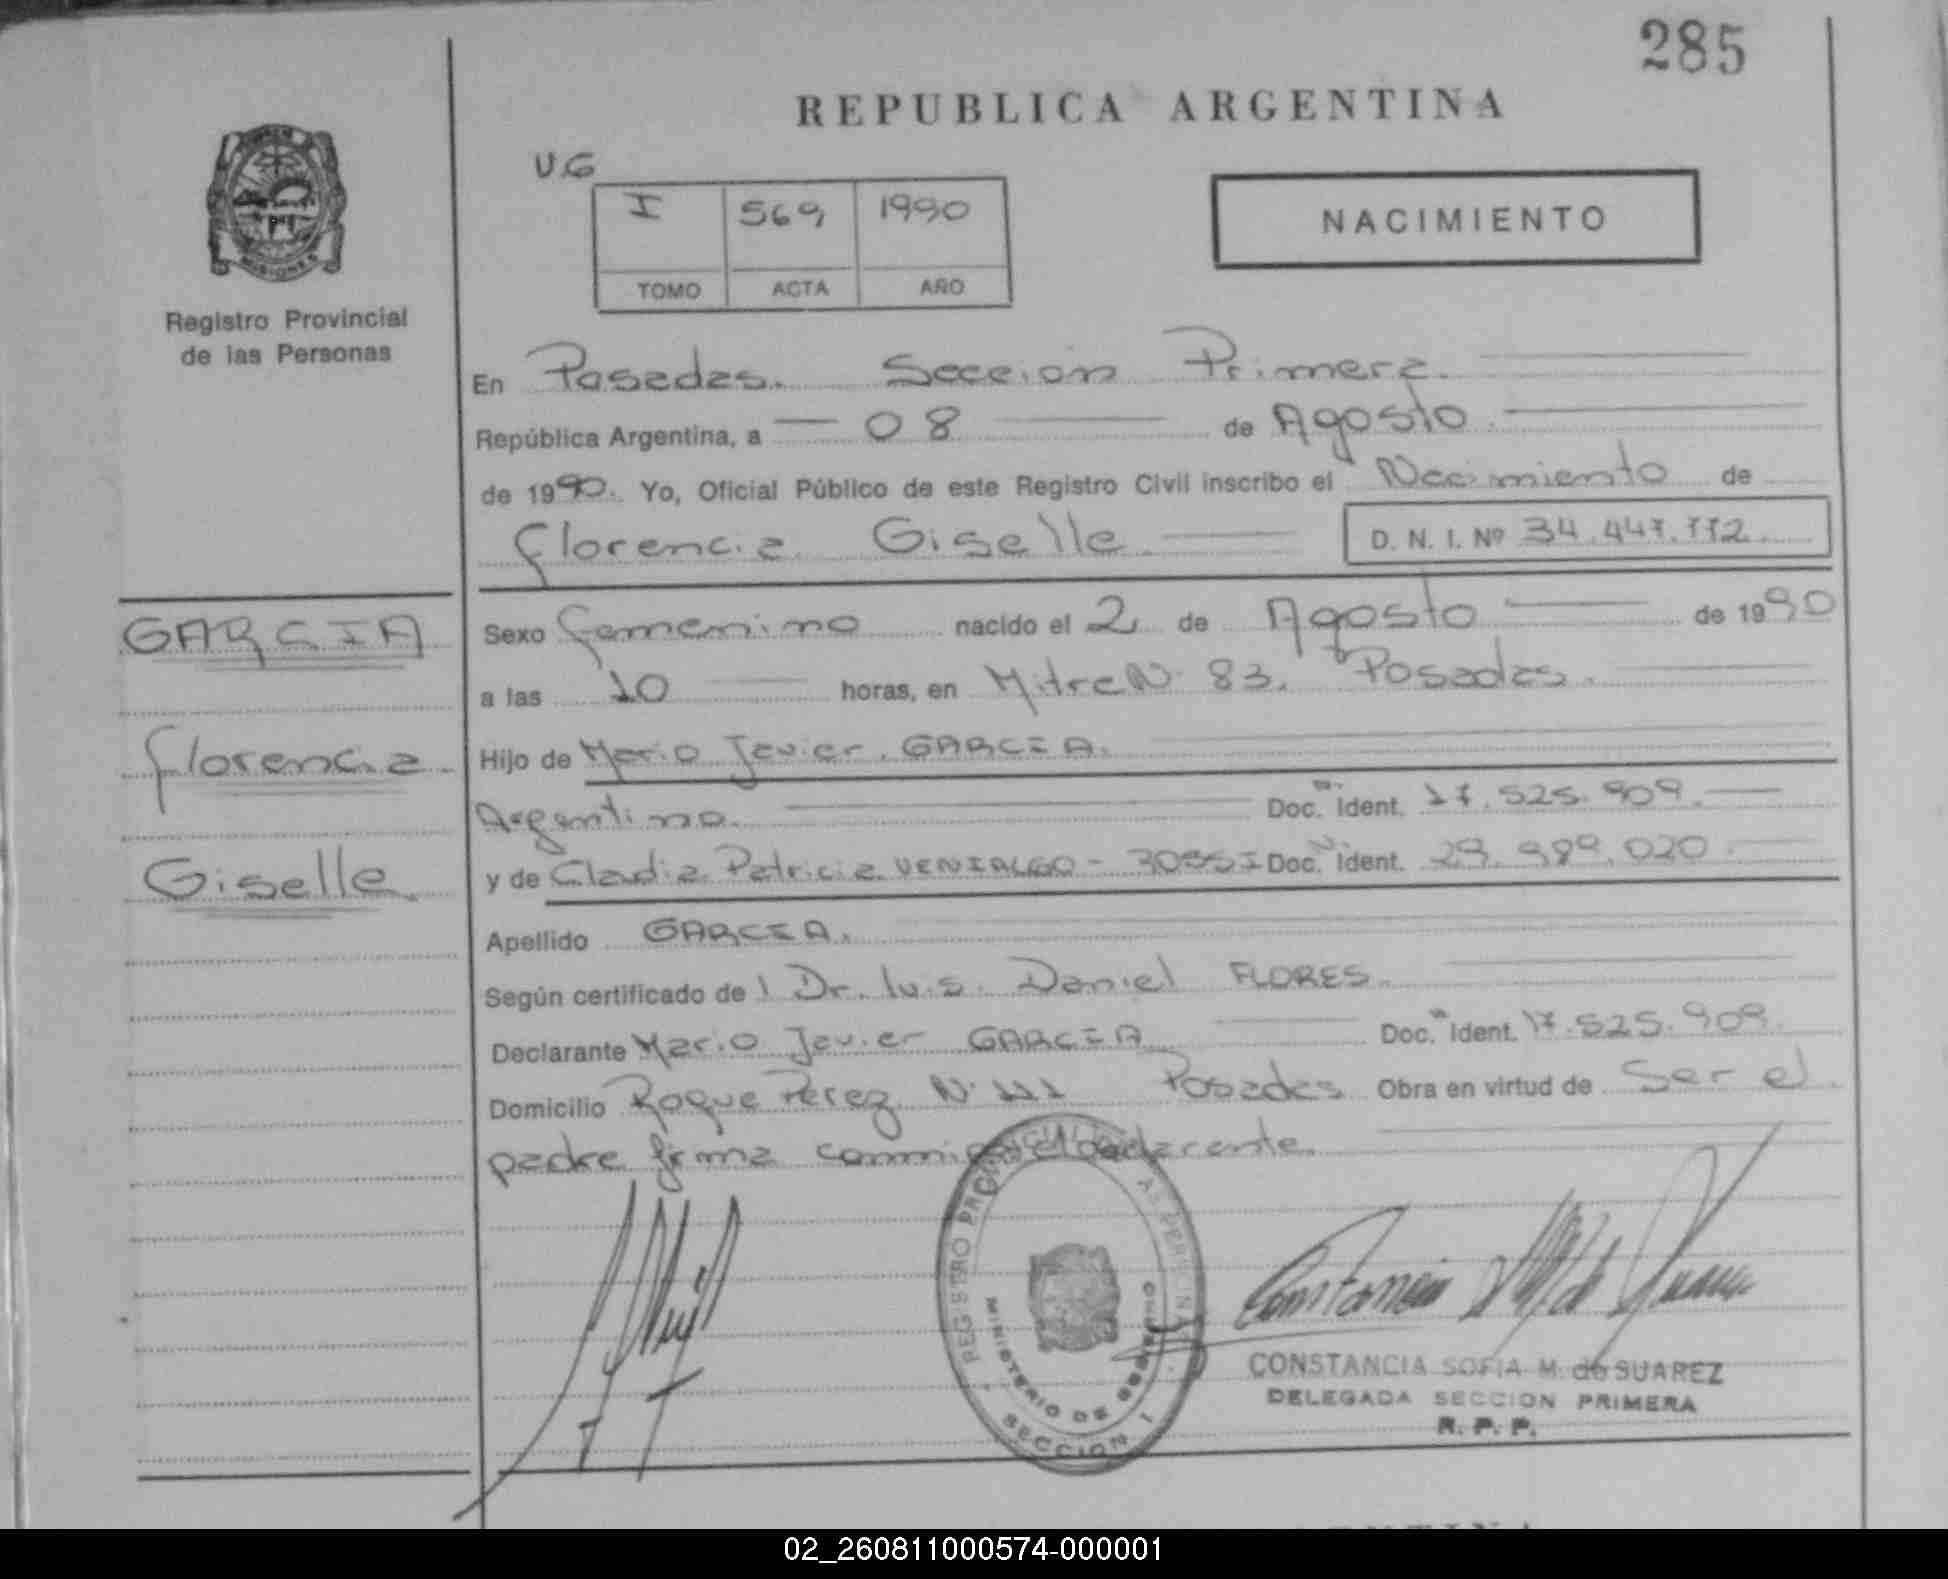 285
REPUBLICA ARGENTINA
U.G
I 569 1990
TOMO ACTA AÑO
NACIMIENTO
MISIONES
Registro Provincial
de las Personas
En Posadas. Sección Primera.
República Argentina, a — 08 — de Agosto.
de 1990. Yo, Oficial Público de este Registro Civil inscribo el Nacimiento de
Florencia Giselle. D. N. I. Nº 34.447.772.
GARCIA
Florencia
Giselle
Sexo Femenino nacido el 2 de Agosto de 1990
a las 10 horas, en Mitre N 83. Posadas.
Hijo de Mario Javier. GARCIA.
Argentino. Doc. Ident. 17.525.909.
y de Cladia Patricia VENIALGO - Doc. Ident. 989.020.
Apellido GARCIA.
Según certificado de l Dr. Luis Daniel FLORES.
Declarante Mario Javier GARCIA Doc. Ident. 17.525.909.
Domicilio Roque Perez Nº 111 Posadas Obra en virtud de Ser el
padre firma conmigo el declarante.
REGISTRO PROVINCIAL DE LAS PERSONAS
MINISTERIO DE GOBIERNO
SECCION 1
CONSTANCIA SOFIA M. de SUAREZ
DELEGADA SECCION PRIMERA
R. P. P.
02_260811000574-000001